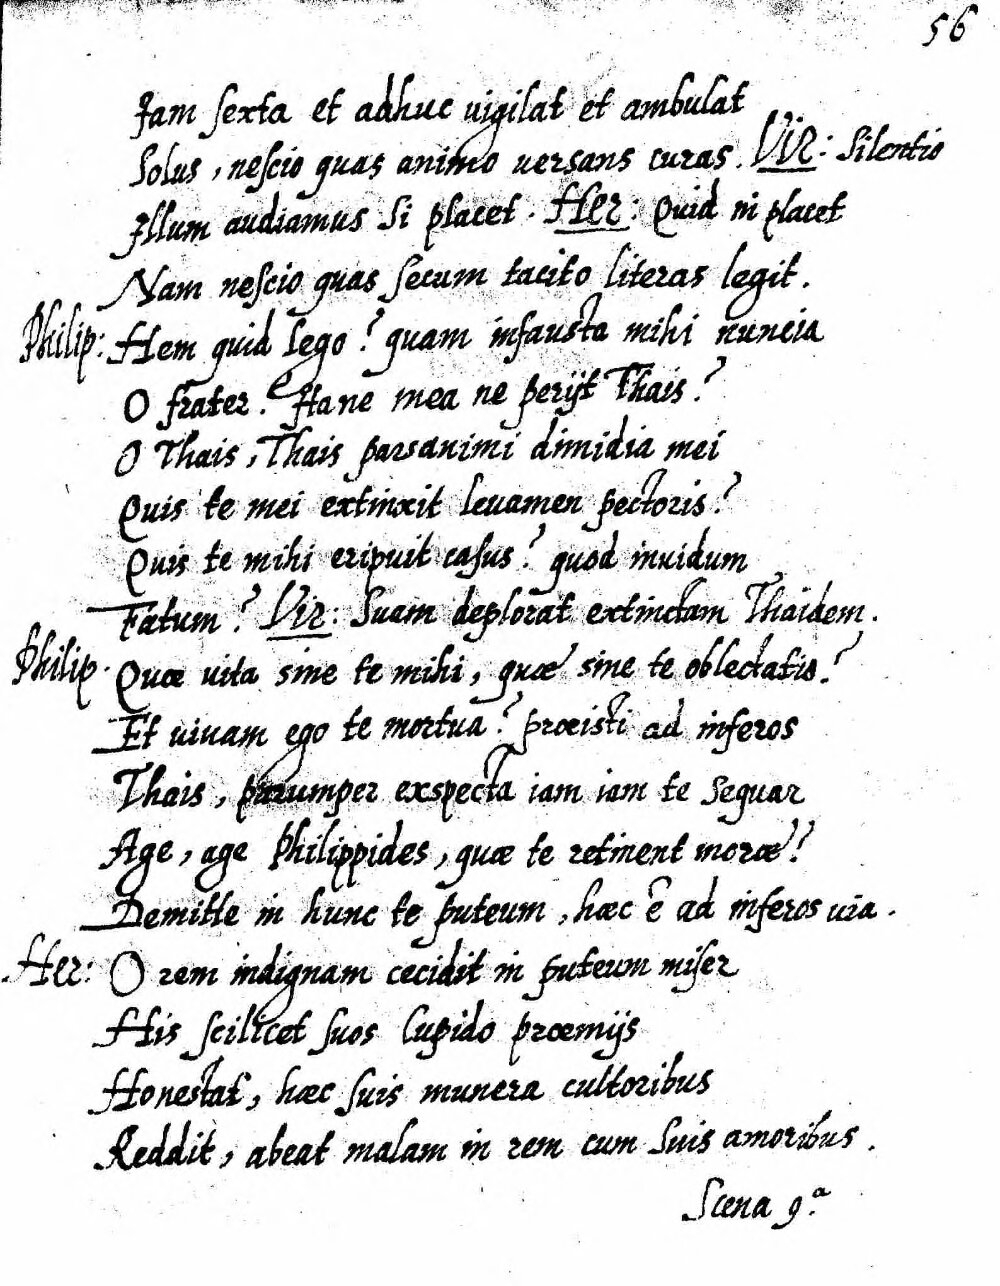 56
Iam sexta et adhuc uigilat et ambulat
Solus, nescio quas animo uersans curas. Vir: Silentio
Illum audiamus si placet. Her: Quid ni placet
Nam nescio quas secum tacito literas legit.
Philip: Hem quid lego? quam infausta mihi nuncia
O frater! Hane mea ne perijt Thais?
O Thais, Thais pars animi dimidia mei
Quis te mei extinxit leuamen pectoris?
Quis te mihi eripuit casus? quod inuidum
Fatum? Vir: Suam deplorat extinctam Thaidem.
Philip. Quæ uita sine te mihi, quæ sine te oblectatio?
Et uiuam ego te mortua? præisti ad inferos
Thais, parumper exspecta iam iam te sequar
Age, age Philippides, quæ te retinent moræ?
Demitte in hunc te puteum, hæc ē ad inferos uia.
Her: O rem indignam cecidit in puteum miser
His scilicet suos Cupido præmijs
Honestat, hæc suis munera cultoribus
Reddit, abeat malam in rem cum suis amoribus.
Scena 9.ª